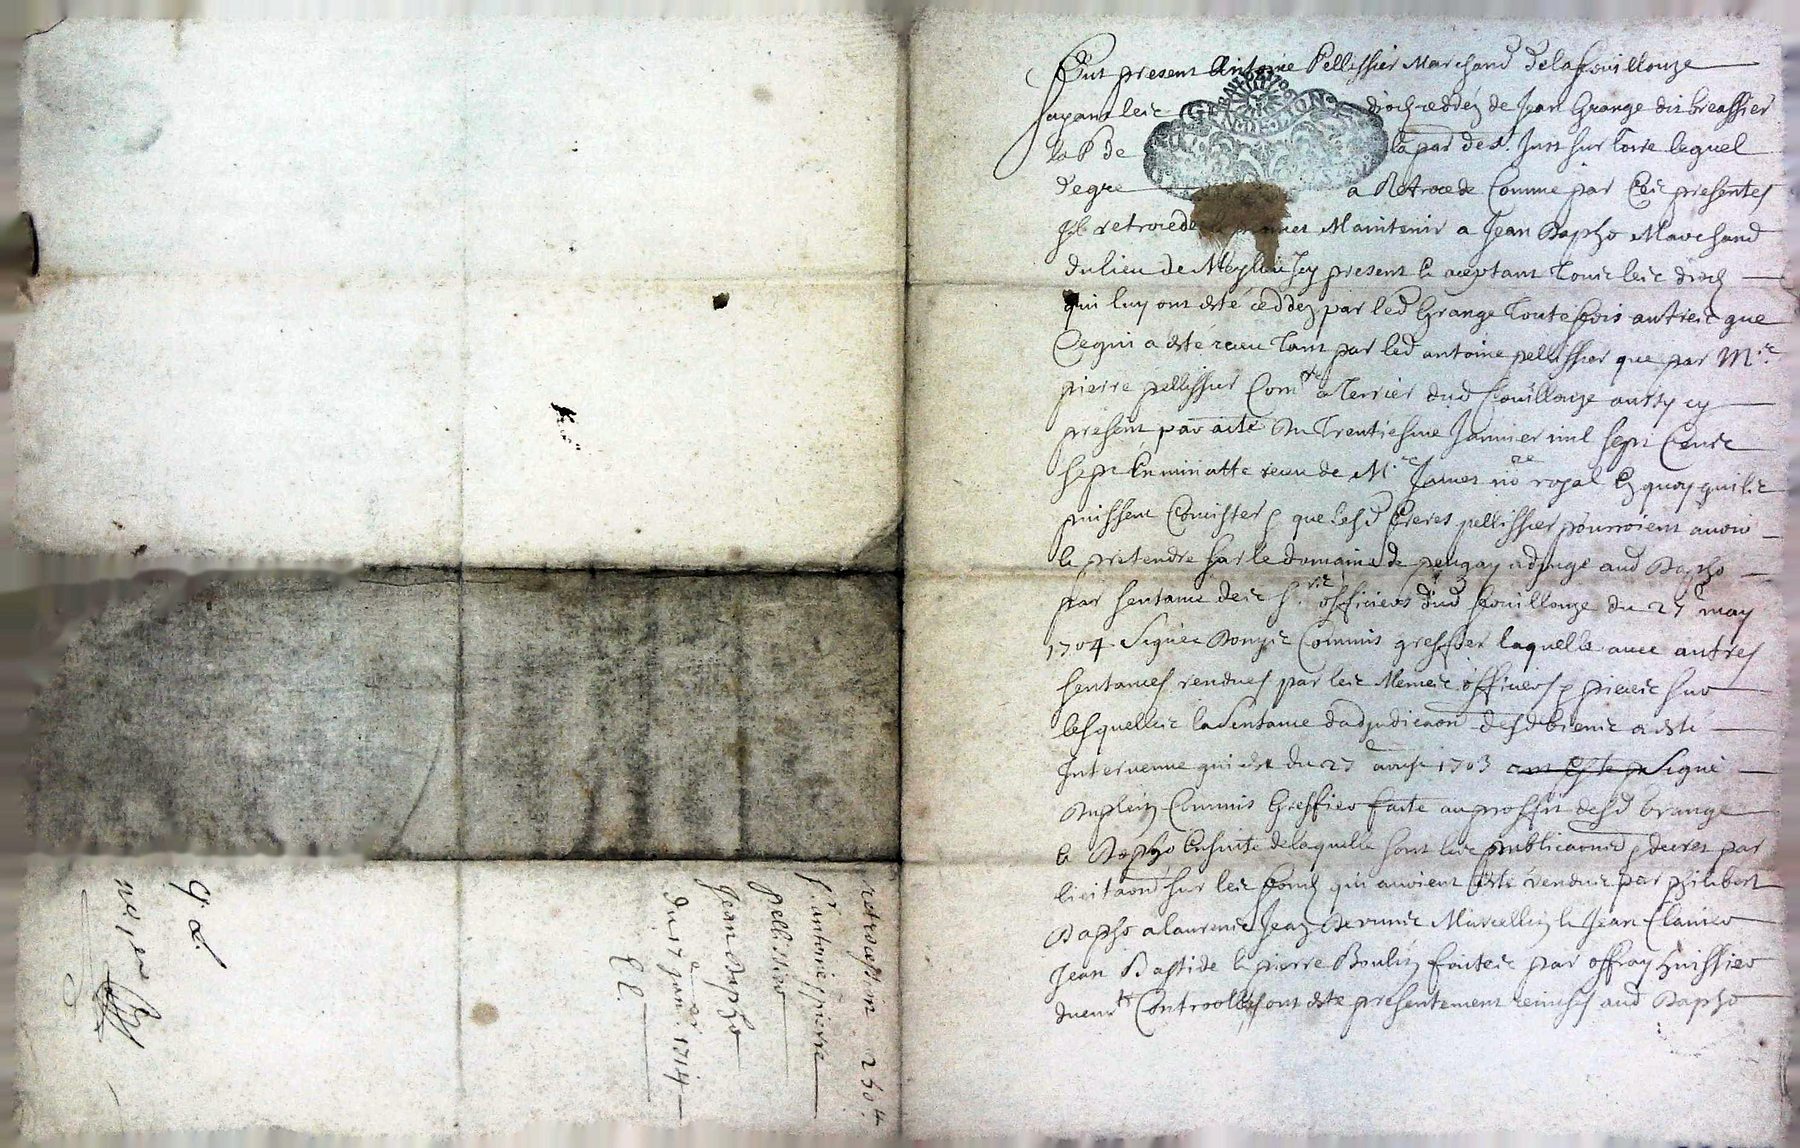 Fut present Antoine Pellissier Marchand de la fouillouze
ayant leis droits ceddés de Jean Grange dit breassier
la P de la par de St Just sur Loire lequel
de gre a Retrocede Comme par Ceis presentes
Il retrocede Maintenir a Jean Dapzo Marchand
du lieu de Meylieu Icy present & aceptant touis leis droits
qui luy ont esté ceddéz par led Grange toutefois autreis que
Ce qui a esté receu tant par led antoine pellissier que par Mre
pierre pellissier Comre a terrier dud fouillouze aussy cy
présent par acte du trentiesme Janvier mil sept Cents
sept En minutte receu de Me James nore royal En quoy quilis
puissent Concister & que lesd freres pellissier pourroient avoir
& pretendre sur le domaine de peugay adjugé aud Dapzo
par sentance deis Srs officiers dud fouillouze du 27 may
1704 Signée Commis greffier laquelle avec autres
sentances rendues par leis Memeis officiers & pieceis sur
lesquelleis la Sentance dadjudicaon desd bienis a esté
Intervenue qui est du 27 aoust 1703 Signé
Dupleis Commis Greffier faite au proffit desd Grange
& Dapzo Ensuite de laquelle sont leis publicaons & decret par
licitaon sur leis fonds qui avoient esté venduis par philibert
Dapzo a laurenis Jean Marcellin & Jean Clavier
Jean Bastide & pierre Boulin faiteis par offray huissier
duemt Controolleis ont esté présentement remises aud Dapzo
retrocession 250 tt
Sr antoine & pierre
pellissier
a
Jean Dapzo
du 17 janer 1714
E E.
G L.